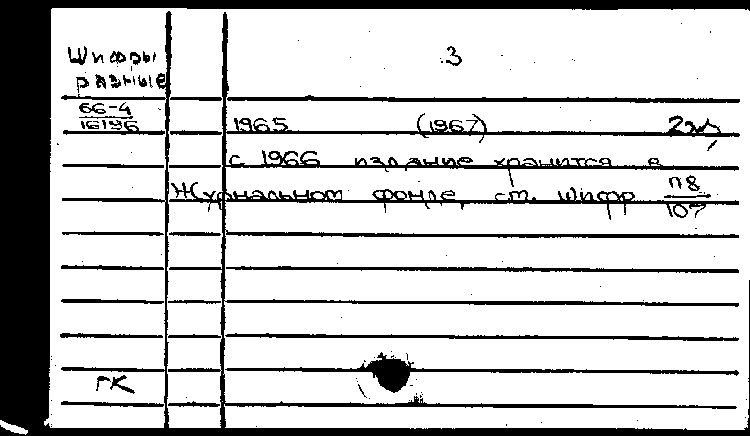 Шифры
разные
3
66-4
16196
1965 (1967) 2экз
с 1966 издание хранится в
Журнальном фонде, ст. шифр П8
107
ГК